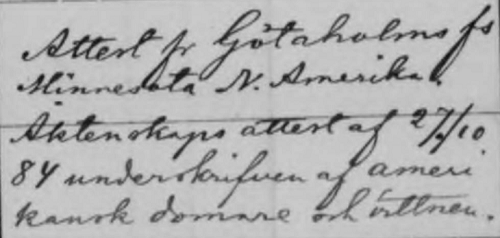 Attest fr Götaholms fs
Minnesota N. Amerika.
Äktenskaps attest af 27/10
84 underskrifven af ameri
kansk domare och vittnen.